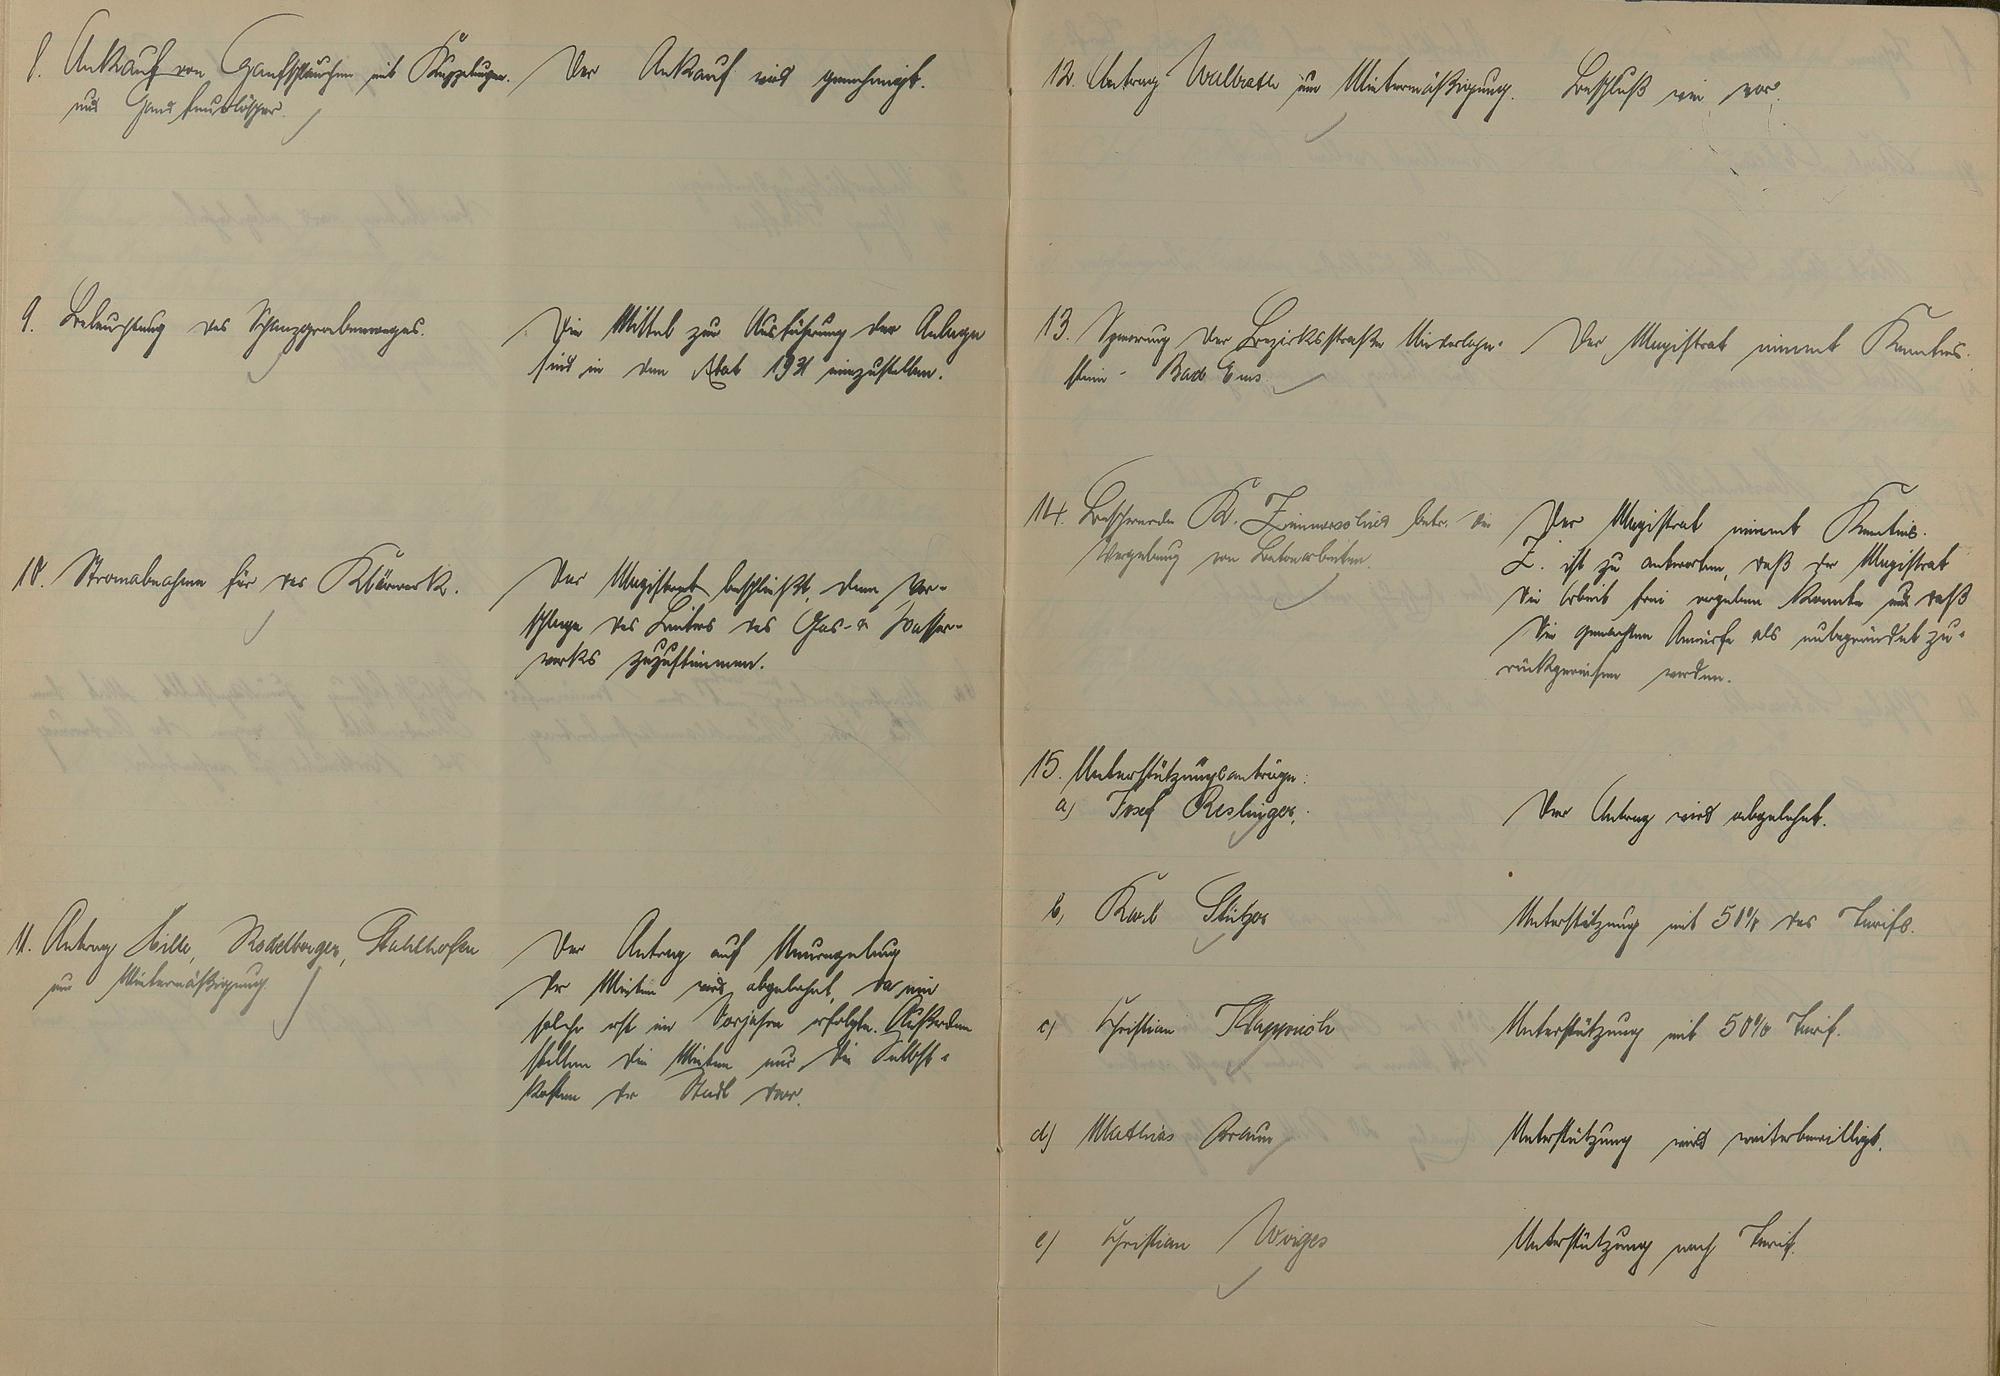 8. Ankauf von Hanfschläuchen mit Kuppelungen.
und Hand feuerlöscher.
Der Ankauf wird genehmigt.
9. Beleuchtung des Schanzgrabenweges.
Die Mittel zur Ausführung der Anlage
sind in den Etat 1931 einzustellen.
10. Stromabnahme für das Klärwerk.
Der Magistrat beschließt, dem Vor-
schlage des Leiters des Gas- u Wasser-
werks zuzustimmen.
11. Antrag Hille, Rodelberger, Stahlhofen
um Mietermäßigung.
Der Antrag auf Neuregelung
der Mieten wird abgelehnt, da eine
solche erst im Vorjahre erfolgte. Außerdem
stellen die Mieten nur die Selbst-
kosten der Stadt dar.
12. Antrag Walbrath um Mietermäßigung.
Beschluß wie vor.
13. Sperrung der Bezirksstraße Niederlahn-
stein - Bad Ems.
Der Magistrat nimmt Kenntnis.
14. Beschwerde K. Zimmerschied betr. die
Vergebung von Betonarbeiten.
Der Magistrat nimmt Kenntnis.
Z. ist zu antworten, daß der Magistrat
die Arbeit frei vergeben konnte und daß
die gemachten Anwürfe als unbegründet zu-
rückgewiesen werden.
15. Unterstützungsanträge:
a) Josef Reslinger,
Der Antrag wird abgelehnt.
b, Karl Stützer
Unterstützung mit 50% des Tarifs.
c) Christian Klapprich
Unterstützung mit 50% Tarif.
d) Mathias Braun
Unterstützung wird weiterbewilligt.
e) Christian Woiges
Unterstützung nach Tarif.